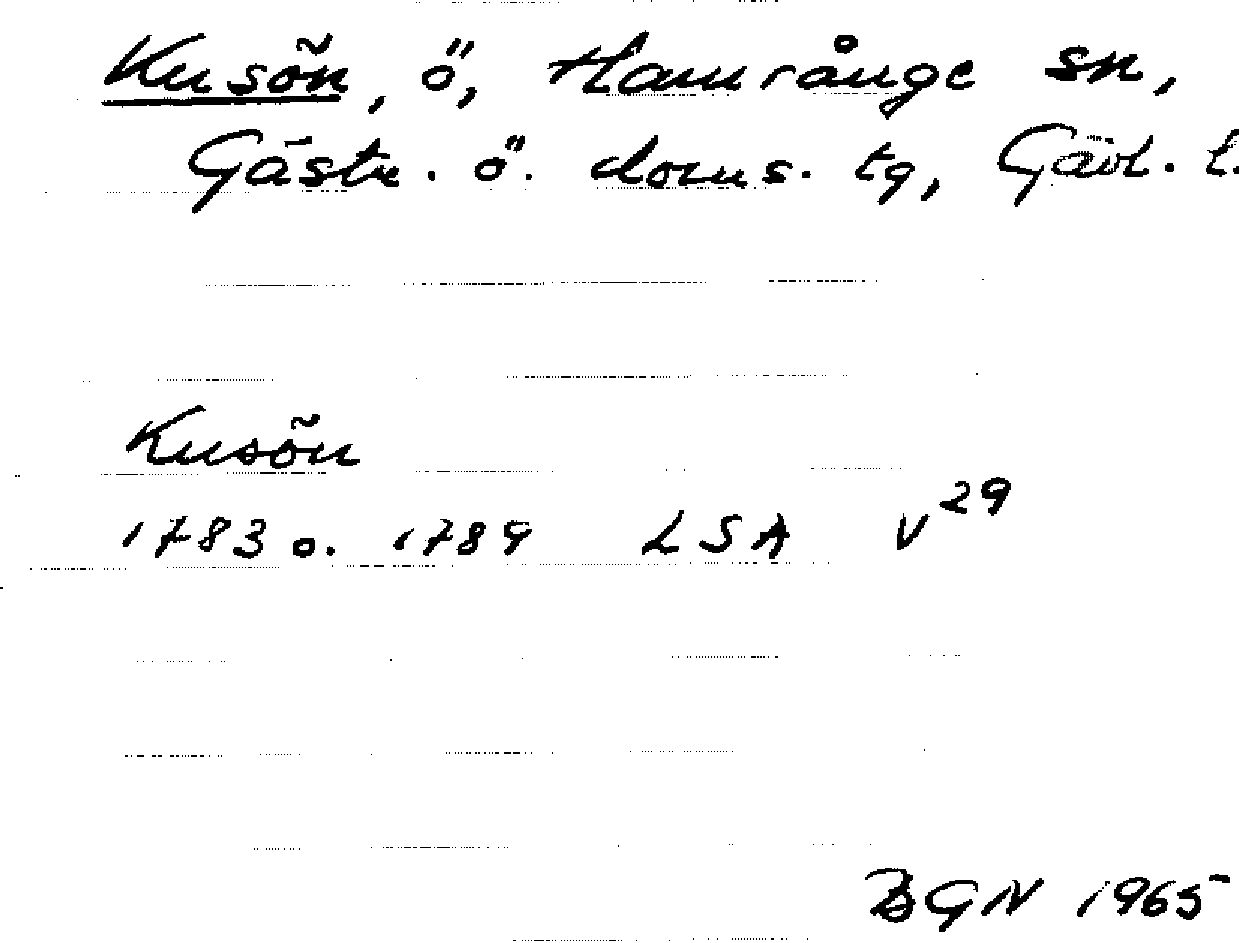 Kusön, ö, Hamrånge sn,
Gästr. ö. doms. tg, Gävl. l.
Kusön
1783 o. 1789 LSA V29
BGN 1965